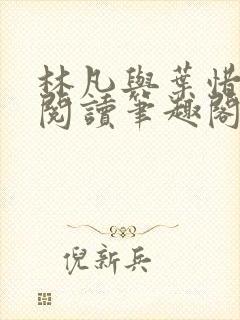 林凡與葉惜
閱讀筆趣閣
倪新兵